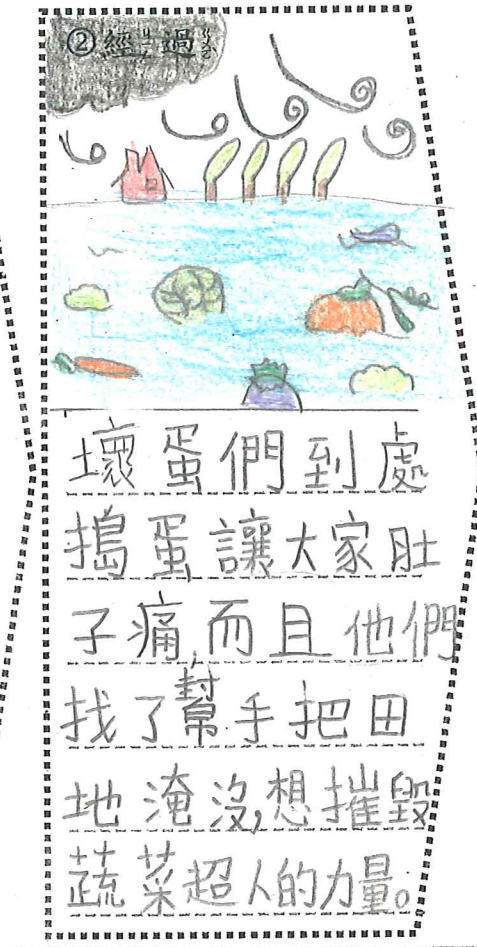 ②經過
壞蛋們到處
搗蛋讓大家肚
子痛,而且他們
找了幫手把田
地淹沒,想摧毀
蔬菜超人的力量。